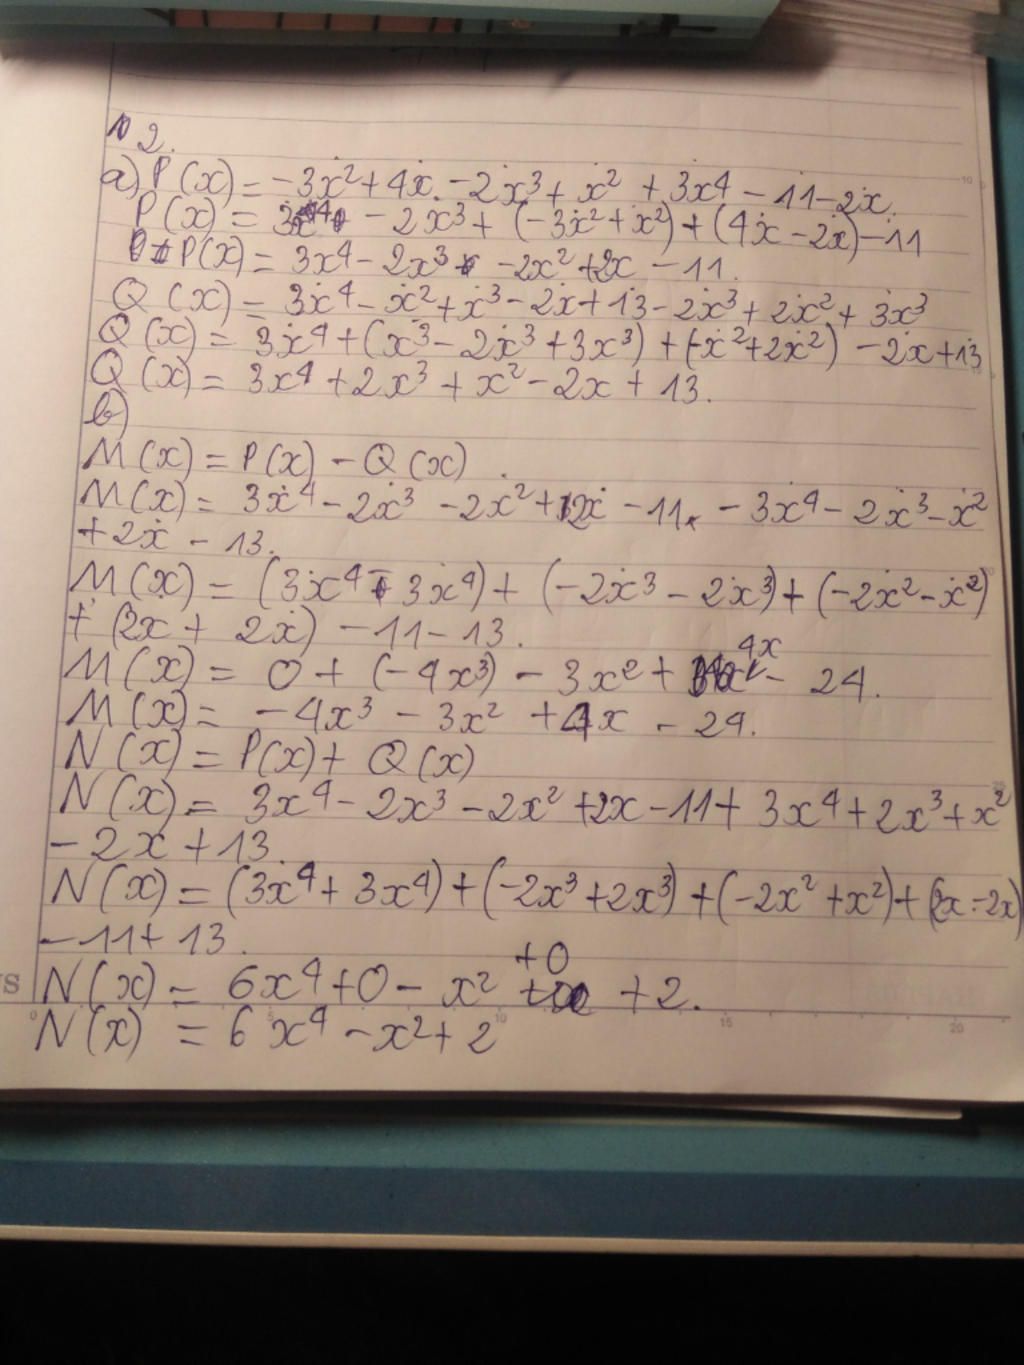 2.
a) P(x) = -3x² + 4x - 2x³ + x² + 3x⁴ - 11 - 2x.
P(x) = 3x⁴ - 2x³ + (-3x² + x²) + (4x - 2x) - 11
P(x) = 3x⁴ - 2x³ - 2x² + 2x - 11.
Q(x) = 3x⁴ - x² + x³ - 2x + 13 - 2x³ + 2x² + 3x³
Q(x) = 3x⁴ + (x³ - 2x³ + 3x³) + (-x² + 2x²) - 2x + 13
Q(x) = 3x⁴ + 2x³ + x² - 2x + 13.
b)
M(x) = P(x) - Q(x).
M(x) = 3x⁴ - 2x³ - 2x² + 2x - 11 - 3x⁴ - 2x³ - x²
+ 2x - 13.
M(x) = (3x⁴ - 3x⁴) + (-2x³ - 2x³) + (-2x² - x²)
+ (2x + 2x) - 11 - 13.
M(x) = 0 + (-4x³) - 3x² + 4x - 24.
M(x) = -4x³ - 3x² + 4x - 24.
N(x) = P(x) + Q(x)
N(x) = 3x⁴ - 2x³ - 2x² + 2x - 11 + 3x⁴ + 2x³ + x²
- 2x + 13.
N(x) = (3x⁴ + 3x⁴) + (-2x³ + 2x³) + (-2x² + x²) + (2x - 2x)
- 11 + 13.
N(x) = 6x⁴ + 0 - x² + 0 + 2.
N(x) = 6x⁴ - x² + 2